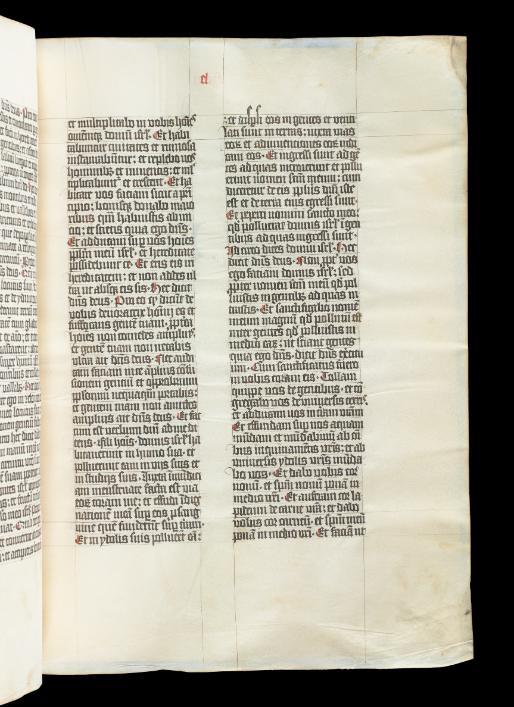 el
et multiplicabo in vobis hoīes
omnemq; domū isr̄l. Et habi
tabuntur civitates et ruinosa
instaurabūtur: et replebo vos
hominibȝ et iumentis: et ml̄
tiplicabunt̄ et crescent. Et ha
bitare vos faciam sicut a prī
cipio: bonisq; donabo maio
ribus qm̄ habuistis ab ini
cio: et scietis quia ego dn̄s.
Et adducam sup vos hoīes
pplm̄ meū isr̄l. et hereditate
possidebunt te. Et eris eis in
hereditatem: et non addes ul
tra ut absq; eis sis. Hec dicit
dn̄s deus. Pro eo qd̄ dicūt de
vobis devoratrix hoīm es et
suffocans gentē tuam, ppt̄ea
hoīes non comedes ampliusˀ
et gentē tuam non necabis
ultra ait dn̄s deus. Nec audi
tam faciam in te āplius cōfu
sionem gentiū et opprobrium
pplorum nequaq̄m portabis:
et gentem tuam non amittes
amplius ait dn̄s deus. Et fac
tum est verbum dn̄i ad me di
cens. Fili hoīs: domus isr̄l ha
bitaverunt in humo sua. et
polluerunt eam in viis suis et
in studiis suis. Iuxta inmūdici
am menstruate facta est via
eoȝ coram me: et effudi īdig
nationē meā sup eos p sanḡ
uine quē fuderūt sup terram.
Et in ydolis suis polluert̄ eā:
et dispsi eos in gentes et venti
lati sunt in terras: iuxta vias
eoȝ et adinventiones eoȝ iudi
cavi eos. Et ingressi sunt ad gē
tes ad quas introierunt et pollu
erunt nomen sctm̄ meum: cum
diceretur de eis pplus dn̄i iste
est et de terra eius egressi sunt.
Et pepci nomini sancto meo:
qd̄ polluerat domus isr̄l ī gen
tibus ad quas ingressi sunt.
Idcirco dices domui isr̄l. Hec
dicit dn̄s deus. Non ppt̄ vos
ego faciam domus isr̄l: sed
ppter nomen sctm̄ meū qd̄ pol
luistis in gentibȝ ad quas in
trastis. Et sanctificabo nomē
meum magnū qd̄ pollutū est
inter gentes qd̄ polluistis in
medio eaȝ: ut sciant gentes
quia ego dn̄s. dicit dn̄s exercitu
um. Cum sanctificatus fuero
in vobis coram eis. Tollam
quippe vos de gentibus. et cō
gregabo vos de universis terris
et adducam vos in t̄ram vr̄am.
Et effundam sup vos aquam
mūdam et mūdabimī ab oī
bus inquinamētis vr̄is: et ab
universis ydolis vr̄is mūda
bo vos. Et dabo vobis cor
novū. et spm̄ novū ponā in
medio vr̄i. Et auferam cor la
pideum de carne vr̄a: et dabo
vobis cor carneū. et spm̄ meū
ponā in medio vr̄i. Et faciā ut